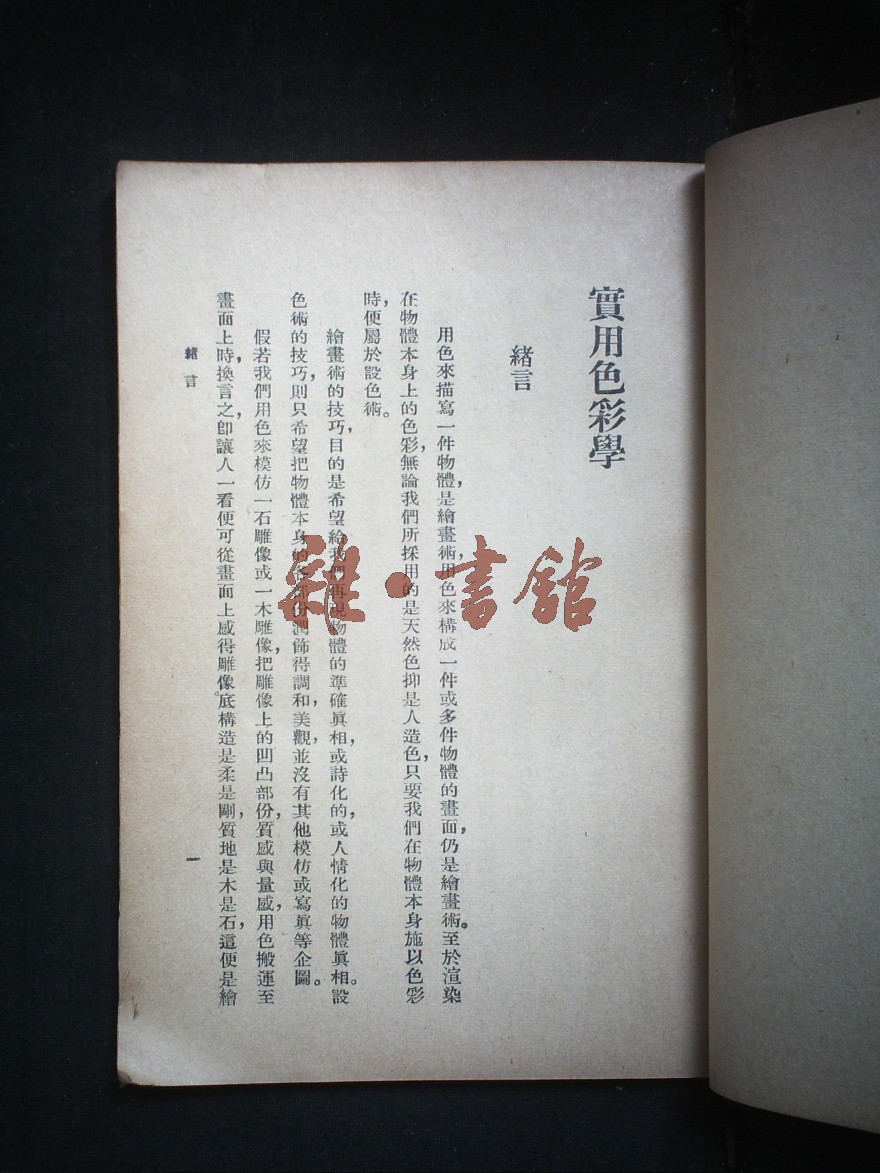 實用色彩學
緒言
用色來描寫一件物體，是繪畫術，用色來構成一件或多件物體的畫面，仍是繪畫術。至於渲染
在物體本身上的色彩，無論我們所採用的是天然色抑是人造色，只要我們在物體本身施以色彩
時，便屬於設色術。
繪畫術的技巧，目的是希望給我們再現物體的準確眞相，或詩化的，或人情化的物體眞相。設
色術的技巧，則只希望把物體本身的各部份潤飾得調和，美觀，並沒有其他模仿或寫眞等企圖。
假若我們用色來模仿一石雕像或一木雕像，把雕像上的凹凸部份，質感與量感，用色搬運至
畫面上時，換言之，卽讓人一看便可從畫面上感得雕像。底構造是柔是剛，質地是木是石，這便是繪
緒言
一
雜·書館